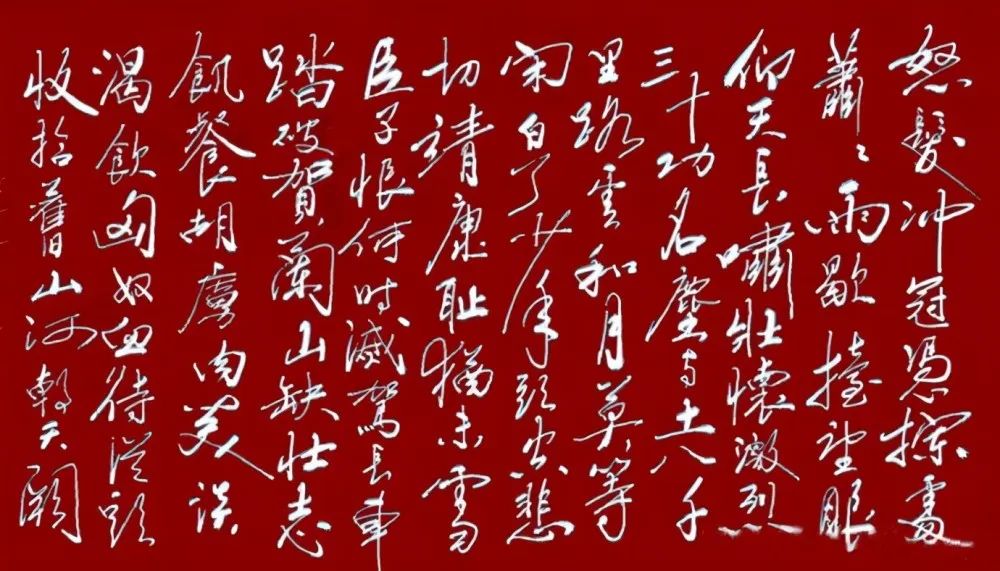 怒髮冲冠憑欄處
蕭〻雨歇擡望眼
仰天長嘯壯懷激烈
三十功名塵与土八千
里路雲和月莫等
闲白了少年頭空悲
切靖康耻猶未雪
臣子恨何时滅駕長車
踏破賀蘭山缺壯志
飢餐胡虜肉笑談
渴飲匈奴血待從頭
收拾舊山河朝天闕